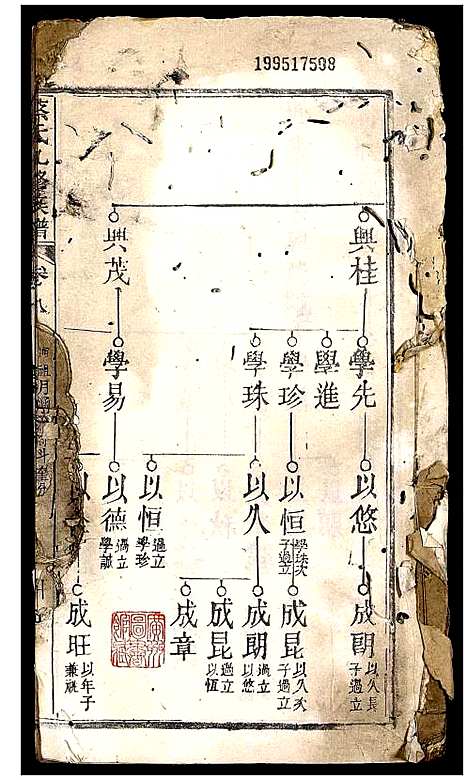 199517598
興桂
興茂
學先
學進
學珍
學珠
學易
以悠
以恒 學珠次子過立
以久
以恒 過立學珍
以德 過立學誠
以
成朗 以久長子過立
成昆 以久次子過立
成朗 過立以悠
成昆 過立以恆
成章
成旺 以年子兼祧
氏九修族譜
卷八